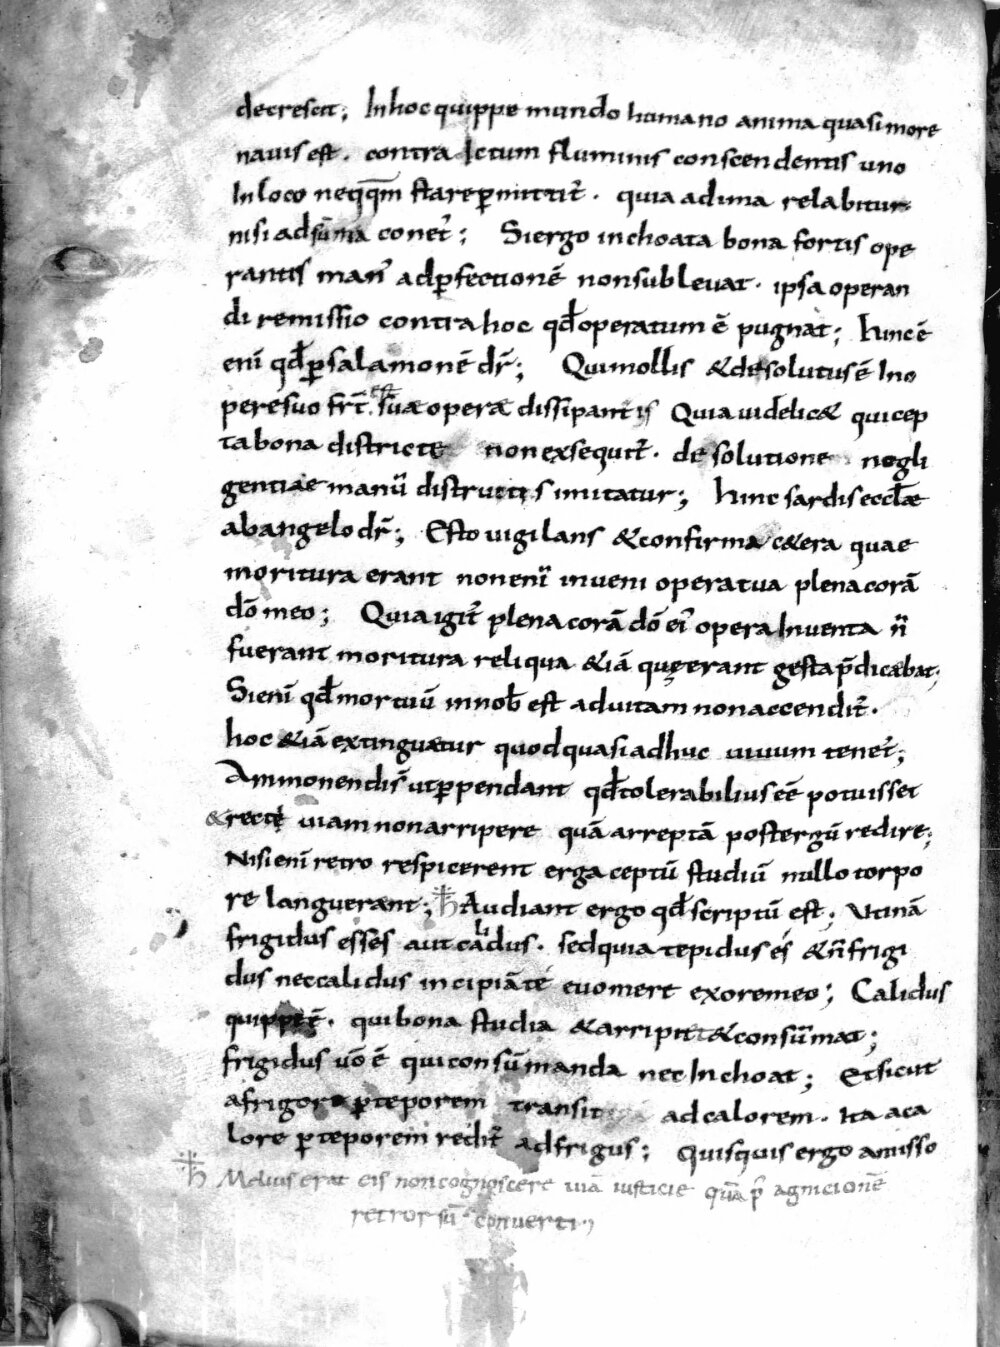 decrescit; In hoc quippe mundo humano anima quasi more
navis est. contra ictum fluminis conscendentis uno
In loco neqq̄m stare ꝑmittit̄. quia ad ima relabitur
nisi ad sūma conet̄; Si ergo inchoata bona fortis ope
rantis man' ad ꝑfectionē non sublevat. ipsa operan
di remissio contra hoc qđ operatum ē pugnat; hinc ē
enī qđ ꝑ salamonē dr̄; Qui mollis & desolutus ē In o
pere suo frt̄. est sua opera dissipantis Quia videlic& qui cep
ta bona districte non exsequit̄. desolutione negli
gentiae manū distructis imitatur; hinc sardis eccl̄ae
ab angelo dr̄; Esto vigilans & confirma c&era quae
moritura erant non enī inveni opera tua plena corā
dō meo; Quia igit̄ plena corā dō ei' opera Inventa n̄
fuerant moritura reliqua &iā quę erant gesta p̄dicabat;
Si enī qđ mortuū in nob̄ est ad vitam non accendit̄.
hoc &iā extinguatur quod quasi adhuc vivum tenet̄;
Ammonendis' ut ꝑpendant qđ tolerabilius eē potuisset
& recte viam non arripere quā arreptā postergū redire;
Nisi enī retro respicerent erga ceptū studiū nullo torpo
re languerant; ħ Audiant ergo qđ scriptū est; Utinā
frigidus esses aut calidus. sed quia tepidus es & n̄ frigi
dus nec calidus incipiā te evomere ex ore meo; Calidus
quippe ē. qui bona studia & arripit & consūmat;
frigidus vō ē qui consūmanda nec Inchoat; Et sicut
a frigore ꝑ teporem transit ad calorem. Ita a ca
lore ꝑ teporem redit̄ ad frigus; Quisquis ergo amisso
ħ Melius erat eis non cognoscere viā iusticie quā p̄ agnicionē
retrorsū converti;